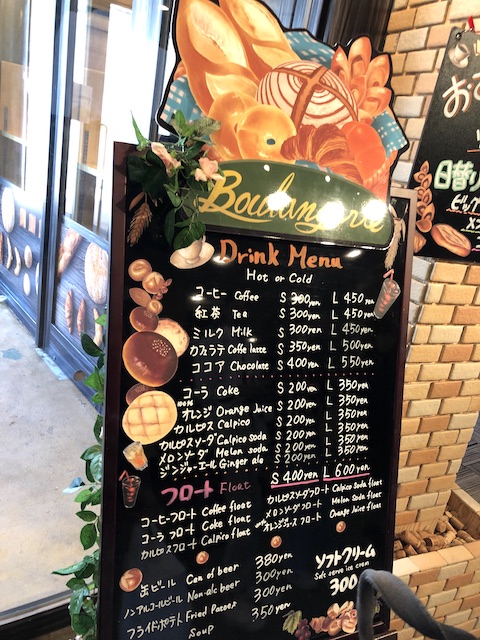 Boulangerie
Drink Menu
Hot or Cold
コーヒー Coffee S 300yen L 450yen
紅茶 Tea S 300yen L 450yen
ミルク Milk S 300yen L 450yen
カフェラテ Coffe latte S 350yen L 500yen
ココア Chocolate S 400yen L 550yen
コーラ Coke S 200yen L 350yen
100% オレンジ Orange Juice S 200yen L 350yen
カルピス Calpico S 200yen L 350yen
カルピスソーダ Calpico Soda S 200yen L 350yen
メロンソーダ Melon soda S 200yen L 350yen
ジンジャーエール Ginger ale S 200yen L 350yen
フロート Float S 400yen L 600yen
コーヒーフロート Coffee float
コーラフロート Coke float
カルピスフロート Calpico float
カルピスソーダフロート Calpico Soda float
メロンソーダフロート Melon Soda float
オレンジジュースフロート Orange Juice float
缶ビール Can of beer 380yen
ノンアルコールビール Non-alc beer 300yen
フライドポテト Fried 300yen
Soup 350yen
ソフトクリーム
Soft serve ice cream
300
日替り